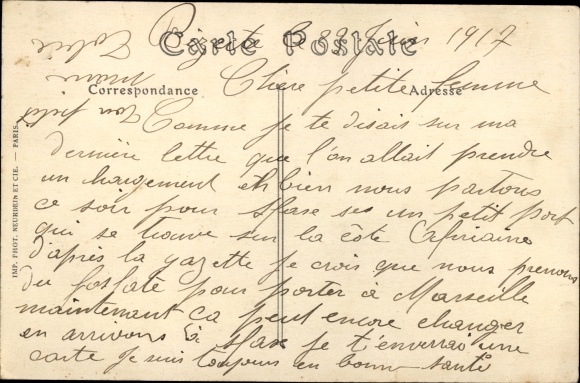 Bizerte le 22 Juin 1917
Carte Postale
Chère petite femme
Correspondance
Adresse
Comme je te disais sur ma
dernière lettre que l'on allait prendre
un chargement eh bien nous partons
ce soir pour Sfase ses un petit port
qui se trouve sur la côte Africaine
d'après la gazette je crois que nous prenons
du fosfate pour porter à Marseille
maintenant ca peut encore changer
en arrivons à Sfase je t'enverrai une
carte Je suis toujours en bonne santé
Ton petit
mari
IMP. PHOT. NEURDEIN ET CIE. — PARIS